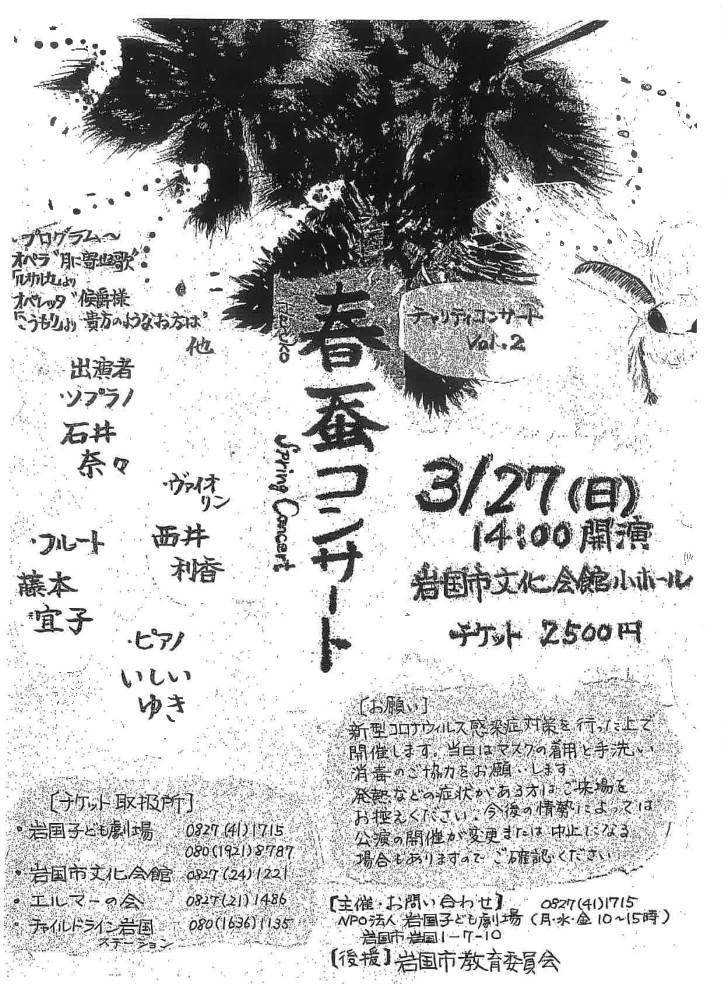 ～プログラム～
オペラ"月に寄せる歌"
「ルサルカ」より
オペレッタ"侯爵様
「こうもり」より 貴方のようなお方は"
他
出演者
・ソプラノ
石井
奈々
・ヴァイオ
リン
西井
利香
・フルート
藤本
宜子
・ピアノ
いしい
ゆき
春蚕コンサート
Spring Concert
チャリティコンサート
Vol.2
3/27(日)
14:00開演
岩国市文化会館小ホール
チケット 2500円
[お願い]
新型コロナウィルス感染症対策を行った上で
開催します。当日はマスクの着用と手洗い
消毒のご協力をお願いします
発熱などの症状がある方はご来場を
お控えください。今後の情勢によっては
公演の開催が変更または中止になる
場合もありますのでご確認ください
[チケット取扱所]
・岩国子ども劇場 0827(41)1715
080(1921)8787
・岩国市文化会館 0827(24)1221
・エルマーの会 0827(21)1486
・チャイルドライン岩国 080(1636)1135
ステーション
【主催・お問い合わせ】 0827(41)1715
NPO法人 岩国子ども劇場（月・水・金 10～15時）
岩国市岩国1-7-10
【後援】岩国市教育委員会